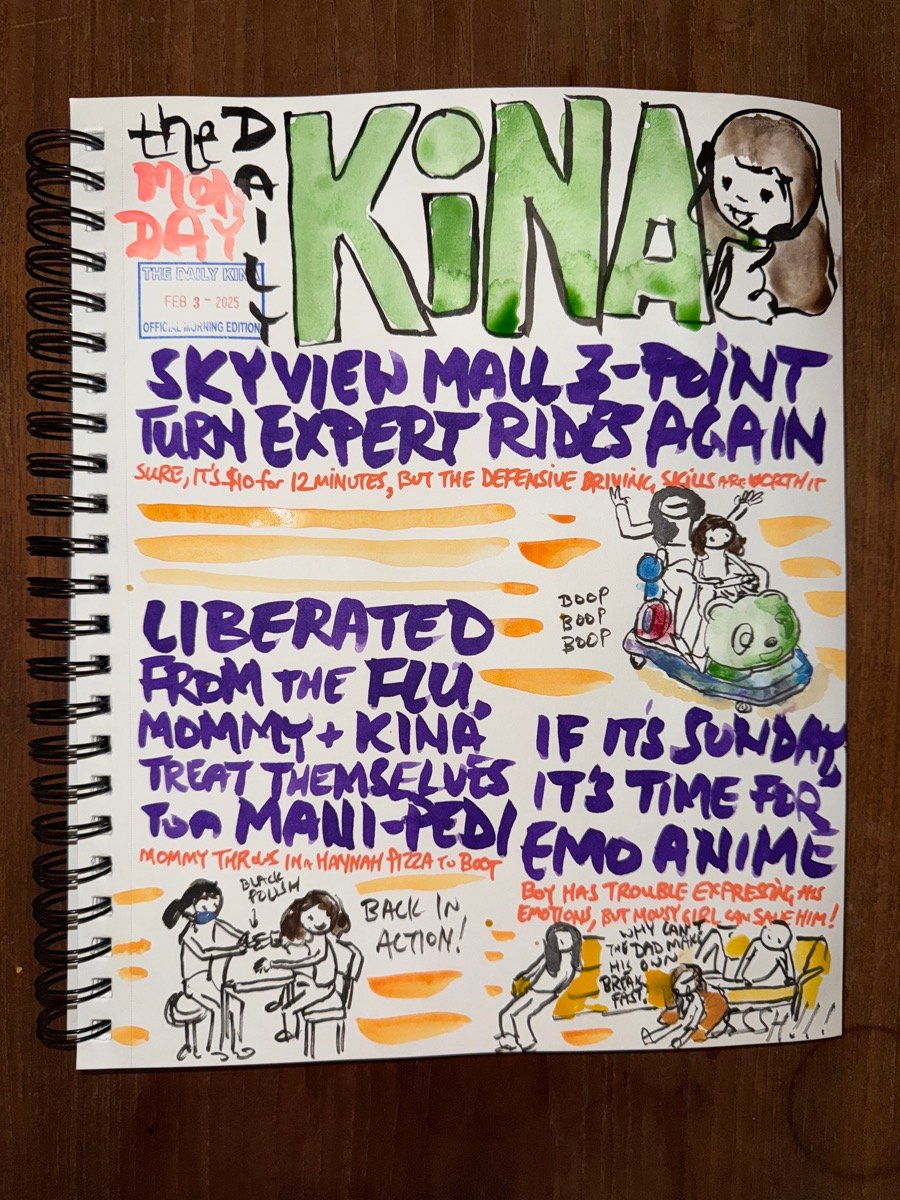 the DAILY KiNA
MON
DAY
THE DAILY KINA
FEB 3 - 2025
OFFICIAL MORNING EDITION
SKYVIEW MALL 3-POiNT
TURN EXPERT RIDES AGAIN
SURE, IT'S $10 for 12 MINUTES, BUT THE DEFENSIVE DRIVING SKILLS ARE WORTH IT
BOOP
BOOP
BOOP
LIBERATED
FROM THE FLU,
MOMMY + KINA
TREAT THEMSELVES
To a MANI-PEDI
MOMMY THROWS IN A HAWNAH PIZZA TO BOOT
BLACK
POLISH
BACK IN
ACTION!
IF IT'S SUNDAY,
IT'S TIME FOR
EMO ANIME
BOY HAS TROUBLE EXPRESSING HIS
EMOTIONS, BUT MOUSY GIRL CAN SAVE HIM!
WHY CAN'T
THE DAD MAKE
HIS OWN
BREAK
FAST?
SSSH!!!